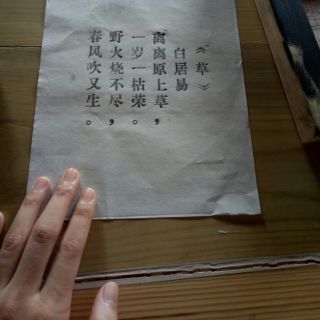 《草》
白居易
离离原上草，
一岁一枯荣。
野火烧不尽，
春风吹又生。